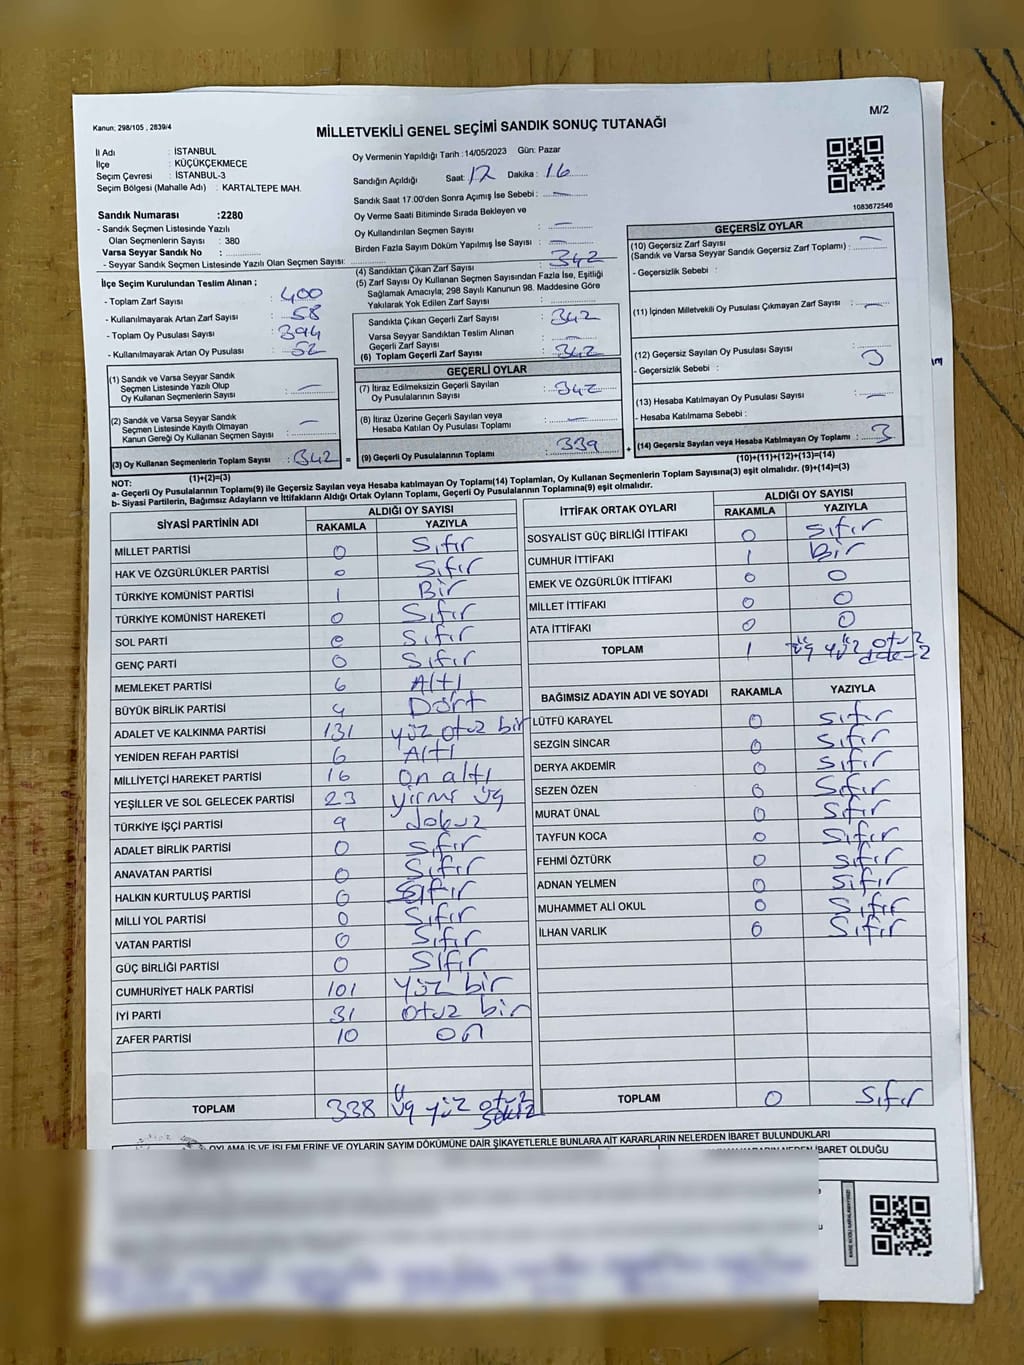 M/2
Kanun; 298/105 , 2839/4
MİLLETVEKİLİ GENEL SEÇİMİ SANDIK SONUÇ TUTANAĞI
İl Adı : İSTANBUL
İlçe : KÜÇÜKÇEKMECE
Seçim Çevresi : İSTANBUL-3
Seçim Bölgesi (Mahalle Adı) : KARTALTEPE MAH.
Sandık Numarası :2280
- Sandık Seçmen Listesinde Yazılı
Olan Seçmenlerin Sayısı : 380
Varsa Seyyar Sandık No :
- Seyyar Sandık Seçmen Listesinde Yazılı Olan Seçmen Sayısı:
İlçe Seçim Kurulundan Teslim Alınan ;
- Toplam Zarf Sayısı : 400
- Kullanılmayarak Artan Zarf Sayısı : 58
- Toplam Oy Pusulası Sayısı : 394
- Kullanılmayarak Artan Oy Pusulası : 52
(1) Sandık ve Varsa Seyyar Sandık
Seçmen Listesinde Yazılı Olup
Oy Kullanan Seçmenlerin Sayısı : —
(2) Sandık ve Varsa Seyyar Sandık
Seçmen Listesinde Kayıtlı Olmayan
Kanun Gereği Oy Kullanan Seçmen Sayısı : —
(3) Oy Kullanan Seçmenlerin Toplam Sayısı : 342 =
(1)+(2)=(3)
Oy Vermenin Yapıldığı Tarih :14/05/2023 Gün: Pazar
Sandığın Açıldığı Saat: 17 Dakika : 16
Sandık Saat 17.00'den Sonra Açımış İse Sebebi : —
Oy Verme Saati Bitiminde Sırada Bekleyen ve
Oy Kullandırılan Seçmen Sayısı : —
Birden Fazla Sayım Döküm Yapılmış İse Sayısı : —
(4) Sandıktan Çıkan Zarf Sayısı : 342
(5) Zarf Sayısı Oy Kullanan Seçmen Sayısından Fazla İse, Eşitliği
Sağlamak Amacıyla; 298 Sayılı Kanunun 98. Maddesine Göre
Yakılarak Yok Edilen Zarf Sayısı :
Sandıkta Çıkan Geçerli Zarf Sayısı : 342
Varsa Seyyar Sandıktan Teslim Alınan
Geçerli Zarf Sayısı : —
(6) Toplam Geçerli Zarf Sayısı : 342
GEÇERLİ OYLAR
(7) İtiraz Edilmeksizin Geçerli Sayılan
Oy Pusulalarının Sayısı : 342
(8) İtiraz Üzerine Geçerli Sayılan veya
Hesaba Katılan Oy Pusulası Toplamı : —
(9) Geçerli Oy Pusulalarının Toplamı : 339 +
1083672546
GEÇERSİZ OYLAR
(10) Geçersiz Zarf Sayısı
(Sandık ve Varsa Seyyar Sandık Geçersiz Zarf Toplamı) : —
- Geçersizlik Sebebi :
(11) İçinden Milletvekili Oy Pusulası Çıkmayan Zarf Sayısı : —
(12) Geçersiz Sayılan Oy Pusulası Sayısı : 3
- Geçersizlik Sebebi :
(13) Hesaba Katılmayan Oy Pusulası Sayısı : —
- Hesaba Katılmama Sebebi :
(14) Geçersiz Sayılan veya Hesaba Katılmayan Oy Toplamı : 3
(10)+(11)+(12)+(13)=(14)
NOT:
a- Geçerli Oy Pusulalarının Toplamı(9) ile Geçersiz Sayılan veya Hesaba katılmayan Oy Toplamı(14) Toplamları, Oy Kullanan Seçmenlerin Toplam Sayısına(3) eşit olmalıdır. (9)+(14)=(3)
b- Siyasi Partilerin, Bağımsız Adayların ve İttifakların Aldığı Ortak Oyların Toplamı, Geçerli Oy Pusulalarının Toplamına(9) eşit olmalıdır.
SİYASİ PARTİNİN ADI ALDIĞI OY SAYISI
RAKAMLA YAZIYLA
MİLLET PARTİSİ 0 Sıfır
HAK VE ÖZGÜRLÜKLER PARTİSİ 0 Sıfır
TÜRKİYE KOMÜNİST PARTİSİ 1 Bir
TÜRKİYE KOMÜNİST HAREKETİ 0 Sıfır
SOL PARTİ 0 Sıfır
GENÇ PARTİ 0 Sıfır
MEMLEKET PARTİSİ 6 Altı
BÜYÜK BİRLİK PARTİSİ 4 Dört
ADALET VE KALKINMA PARTİSİ 131 yüz otuz bir
YENİDEN REFAH PARTİSİ 6 Altı
MİLLİYETÇİ HAREKET PARTİSİ 16 on altı
YEŞİLLER VE SOL GELECEK PARTİSİ 23 yirmi üç
TÜRKİYE İŞÇİ PARTİSİ 9 dokuz
ADALET BİRLİK PARTİSİ 0 Sıfır
ANAVATAN PARTİSİ 0 Sıfır
HALKIN KURTULUŞ PARTİSİ 0 Sıfır
MİLLİ YOL PARTİSİ 0 Sıfır
VATAN PARTİSİ 0 Sıfır
GÜÇ BİRLİĞİ PARTİSİ 0 Sıfır
CUMHURİYET HALK PARTİSİ 101 Yüz bir
İYİ PARTİ 31 Otuz bir
ZAFER PARTİSİ 10 On
TOPLAM 338 üç yüz otuz sekiz
İTTİFAK ORTAK OYLARI ALDIĞI OY SAYISI
RAKAMLA YAZIYLA
SOSYALİST GÜÇ BİRLİĞİ İTTİFAKI 0 Sıfır
CUMHUR İTTİFAKI 1 Bir
EMEK VE ÖZGÜRLÜK İTTİFAKI 0 0
MİLLET İTTİFAKI 0 0
ATA İTTİFAKI 0 0
TOPLAM 1 üç yüz otuz
BAĞIMSIZ ADAYIN ADI VE SOYADI RAKAMLA YAZIYLA
LÜTFÜ KARAYEL 0 Sıfır
SEZGİN SİNCAR 0 Sıfır
DERYA AKDEMİR 0 Sıfır
SEZEN ÖZEN 0 Sıfır
MURAT ÜNAL 0 Sıfır
TAYFUN KOCA 0 Sıfır
FEHMİ ÖZTÜRK 0 Sıfır
ADNAN YELMEN 0 Sıfır
MUHAMMET ALİ OKUL 0 Sıfır
İLHAN VARLIK 0 Sıfır
TOPLAM 0 Sıfır
OYLAMA İŞ VE İŞLEMLERİNE VE OYLARIN SAYIM DÖKÜMÜNE DAİR ŞİKAYETLERLE BUNLARA AİT KARARLARIN NELERDEN İBARET BULUNDUKLARI
İBARET OLDUĞU